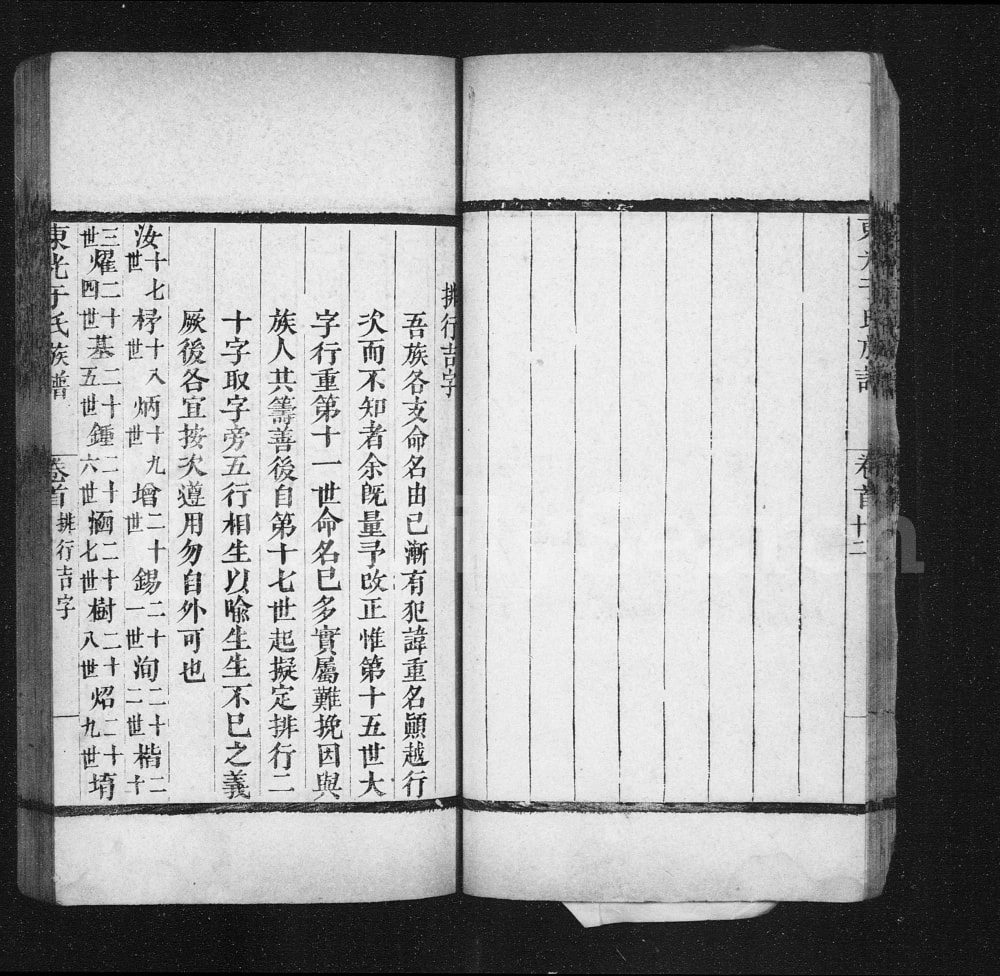 東光于氏族譜 卷首 十二
排行吉字
吾族各支命名由已漸有犯諱重名顚越行
次而不知者余旣量予改正惟第十五世大
字行重第十一世命名已多實屬難挽因與
族人共籌善後自第十七世起擬定排行二
十字取字旁五行相生以喩生生不已之義
厥後各宜按次遵用勿自外可也
汝十七世 杼十八世 炳十九世 增二十世 錫二十一世 洵二十二世 楷二十
三世 燿二十四世 基二十五世 鍾二十六世 涵二十七世 樹二十八世 炤二十九世 堉
東光于氏族譜 卷首 排行吉字